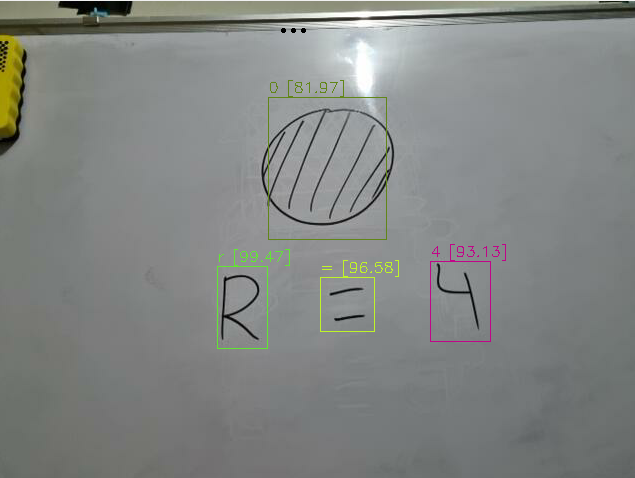 0 [81.97]
r [99.47] = [96.58] 4 [93.13]
R = 4